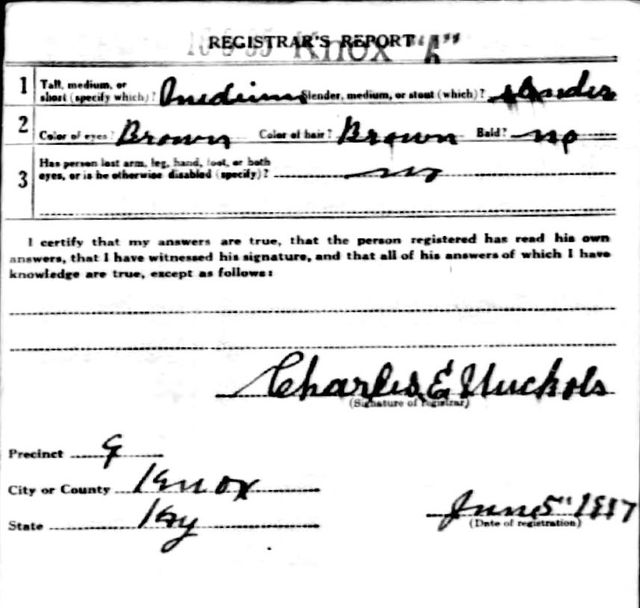 REGISTRAR'S REPORT
KNOX "A"
1 Tall, medium, or short (specify which)? medium Slender, medium, or stout (which)? slender
2 Color of eyes? Brown Color of hair? Brown Bald? no
3 Has person lost arm, leg, hand, foot, or both
eyes, or is he otherwise disabled (specify)? no
I certify that my answers are true, that the person registered has read his own
answers, that I have witnessed his signature, and that all of his answers of which I have
knowledge are true, except as follows:
Charles E Nuckols
(Signature of registrar)
Precinct 9
City or County Knox
State Ky
June 5" 1917
(Date of registration)